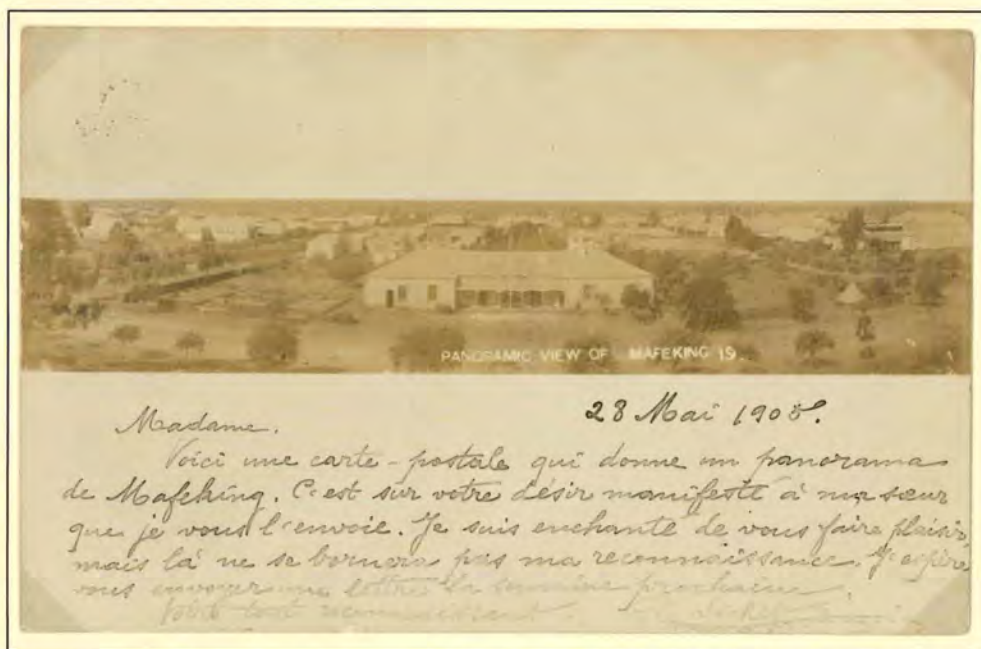 PANORAMIC VIEW OF MAFEKING 19.
28 Mai 1905.
Madame.
Voici une carte-postale qui donne un panorama
de Mafeking. C'est sur votre désir manifesté à ma sœur
que je vous l'envoie. Je suis enchanté de vous faire plaisir,
mais là ne se bornera pas ma reconnaissance. J'espère
vous envoyer une lettre la semaine prochaine.
Votre tout reconnaissant